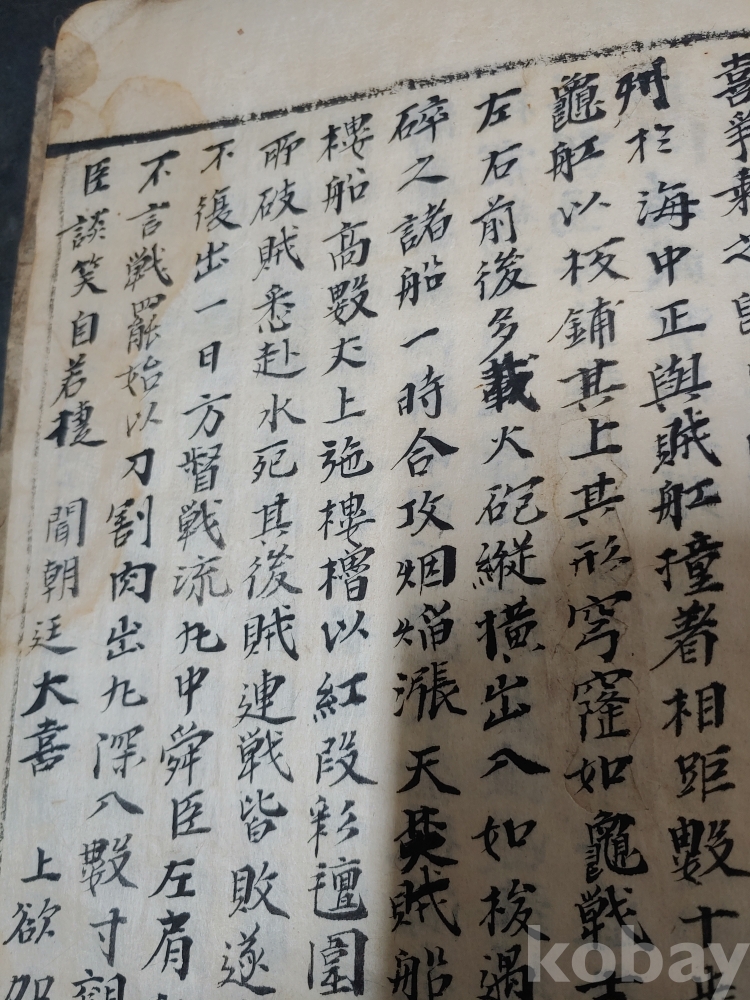 喜爭乘之
州於海中正與賊舡撞着相距數十步
龜舡以板鋪其上其形穹窿如龜戰士
左右前後多載火砲縱橫出入如梭過
碎之諸船一時合攻烟焰漲天焚賊船
樓船高數丈上施樓櫓以紅段彩氊圍
所破賊悉赴水死其後賊連戰皆敗遂
不復出一日方督戰流丸中舜臣左肩
不言戰罷始以刀割肉出丸深入數寸觀
臣談笑自若捷聞朝廷大喜上欲加
kobay